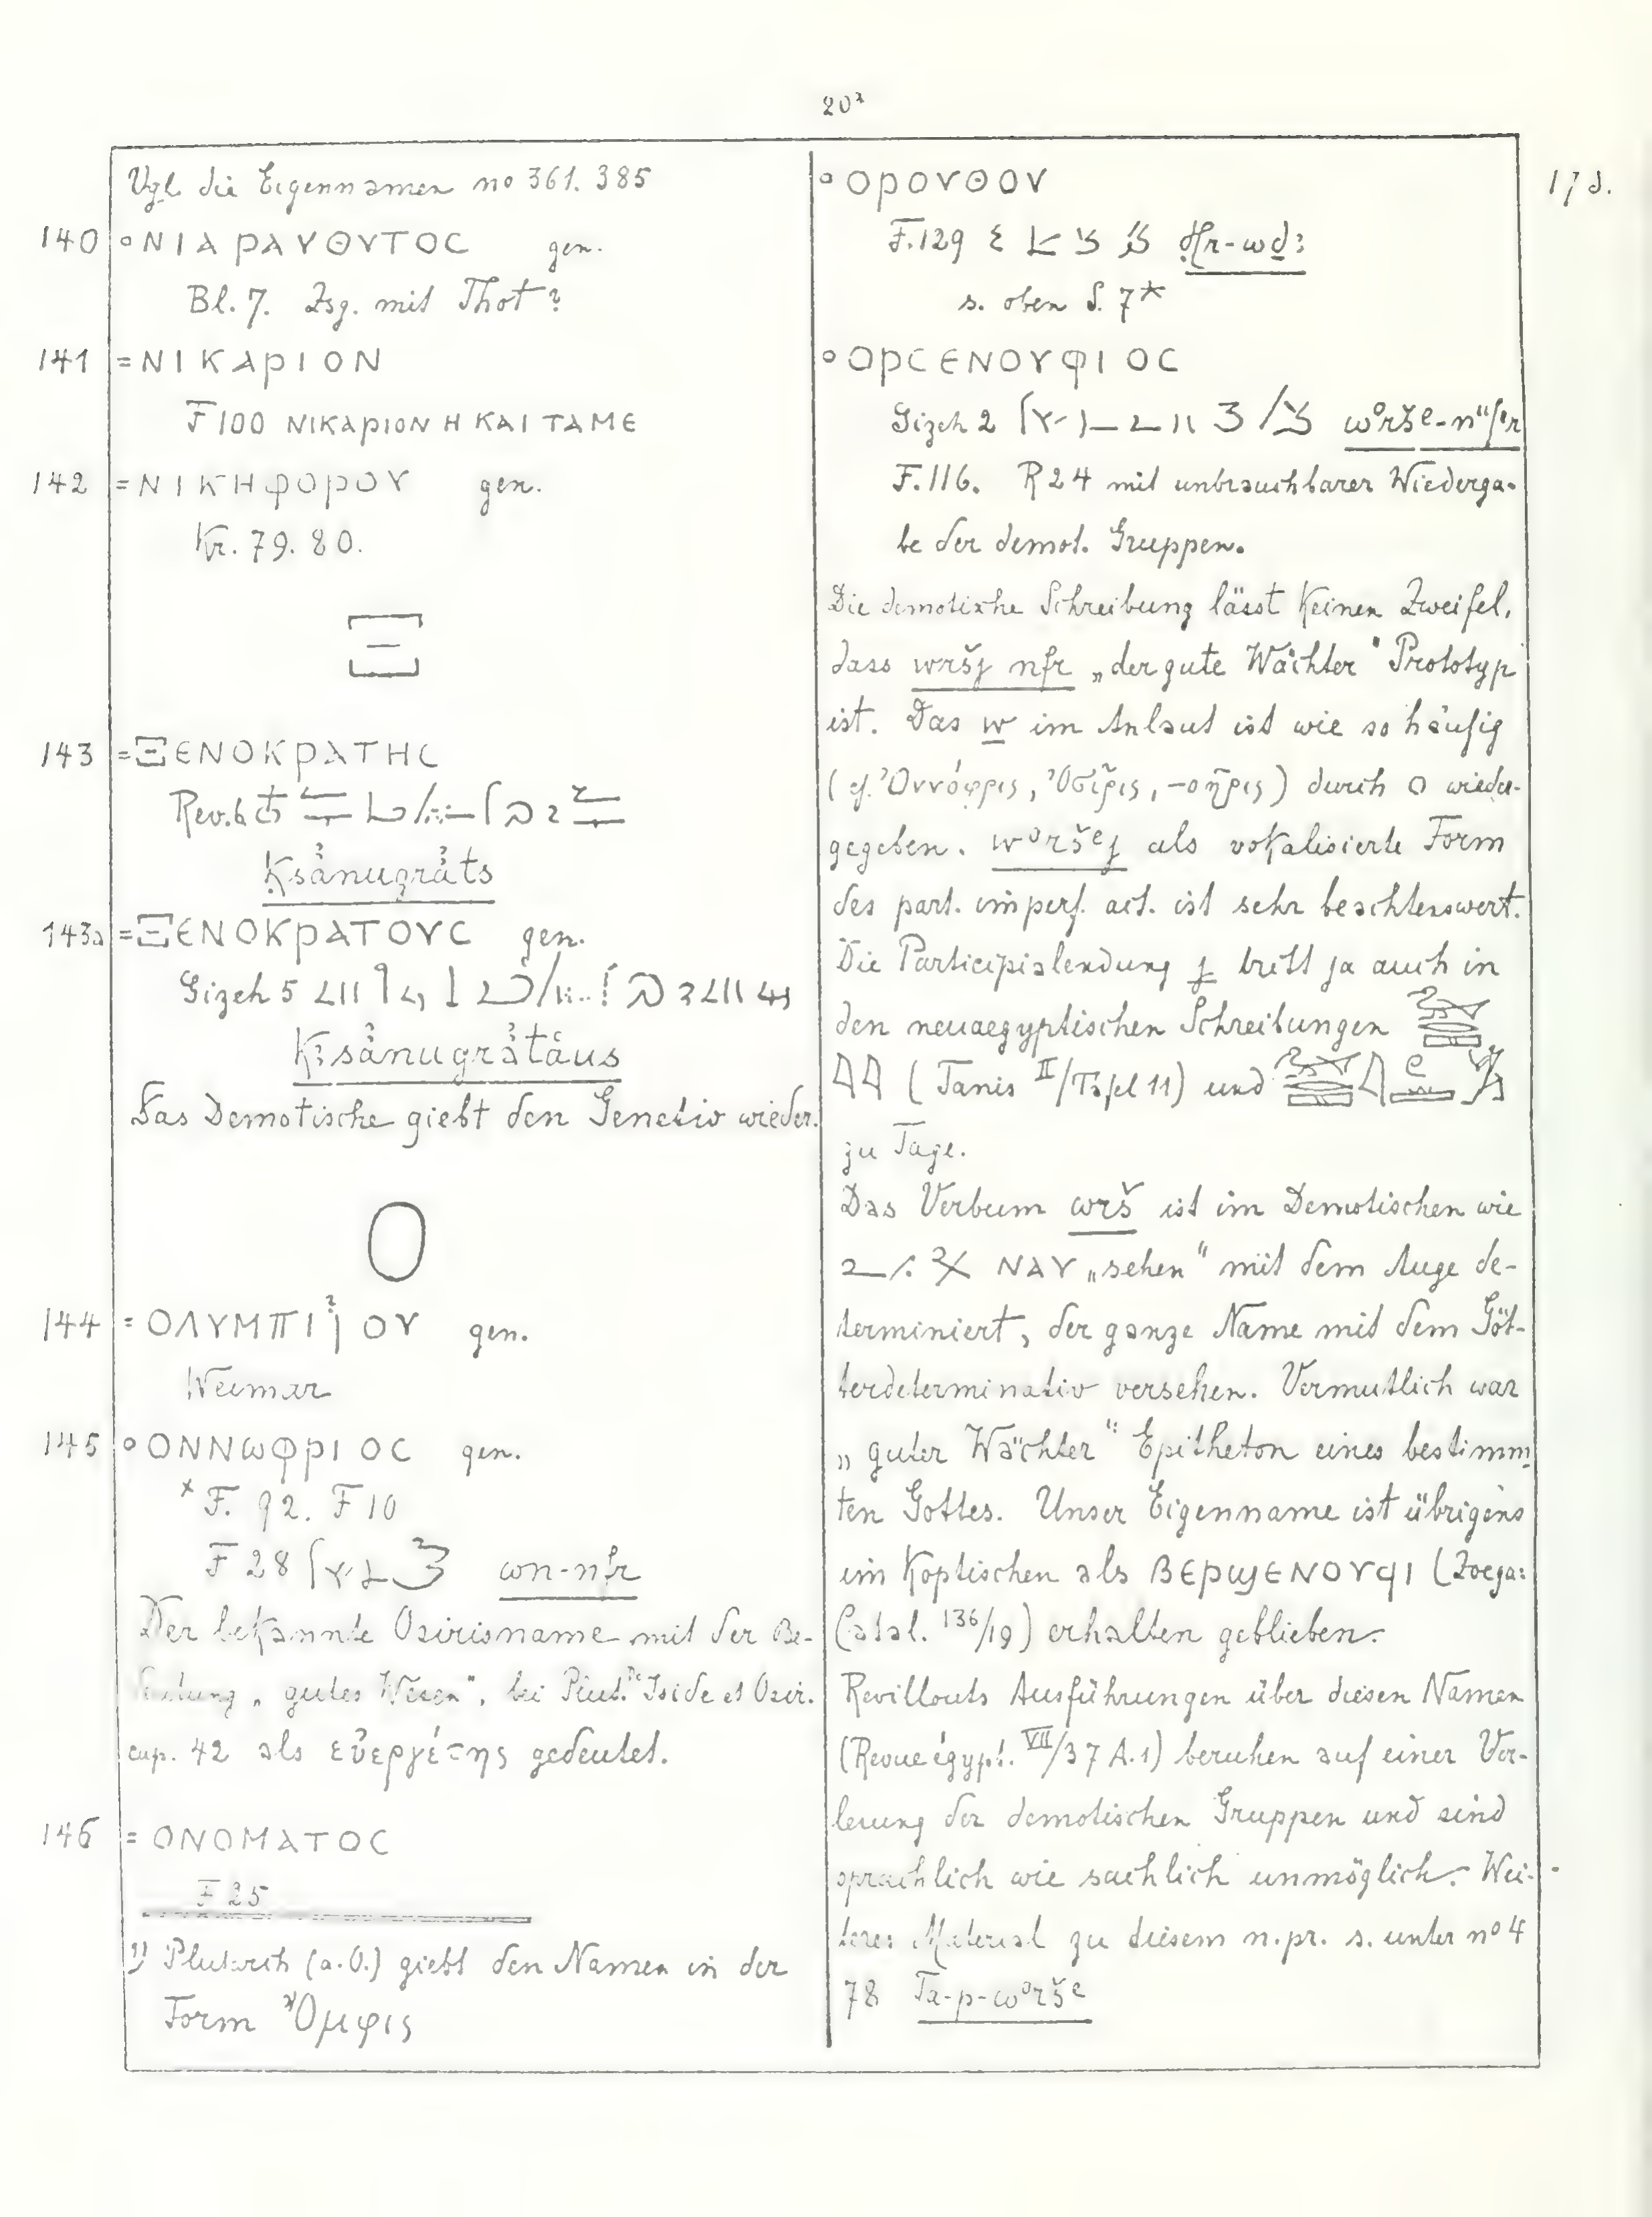 20*
Vgl. die Eigennamen no 361. 385
140 ° ΝΙΑΡΑΥΘΥΤΟϹ gen.
Bl. 7. Zsg. mit Thot?
141 = ΝΙΚΑΡΙΟΝ
F 100 ΝΙΚΑΡΙΟΝ Η ΚΑΙ ΤΑΜΕ
142 = ΝΙΚΗΦΟΡΟΥ gen.
Kr. 79. 80.
Ξ
143 = ΞΕΝΟΚΡΑΤΗϹ
Rev. 6
Ksånugråts
143a = ΞΕΝΟΚΡΑΤΟΥϹ gen.
Gizeh 5
Das Demotische giebt den Genetiv wieder.
O
144 = ΟΛΥΜΠΙ ΟΥ gen.
Weimar
145 ° ΟΝΝωΦΡΙΟϹ gen.
* F. 92. F 10
F 28 wn-nfr
Der bekannte Osirisname mit der Be-
deutung „gutes Wesen", bei Plut. De Iside et Osir.
cap. 42 als εὐεργέτης gedeutet.
146 = ΟΝΟΜΑΤΟϹ
F 25
1) Plutarch (a. O.) giebt den Namen in der
Form Ὄμφις
° ΟΡΟΥΘΟΥ
F. 129 Ḥr-wḏ3
s. oben S. 7*
° ΟΡϹΕΝΟΥΦΙΟϹ
Gizeh 2
F. 116. R 24 mit unbrauchbarer Wiederga-
be der demot. Gruppen.
Die demotische Schreibung lässt keinen Zweifel,
dass wršj nfr „der gute Wächter" Prototyp
ist. Das w im Anlaut ist wie so häufig
(cf. Ὀννόφρις, Ὀσῖρις, -οῆρις) durch O wieder-
gegeben. wᵒršᵉj als vokalisierte Form
des part. imperf. act. ist sehr beachtenswert.
Die Participialendung j tritt ja auch in
den neuaegyptischen Schreibungen
(Tanis II/Tafel 11) und
zu Tage.
Das Verbum wrš ist im Demotischen wie
ΝΑΥ „sehen" mit dem Auge de-
terminiert, der ganze Name mit dem Göt-
terdeterminativ versehen. Vermutlich war
„guter Wächter" Epitheton eines bestimm-
ten Gottes. Unser Eigenname ist übrigens
im Koptischen als ⲂⲈⲢϢⲈⲚⲞⲨϤⲒ (Zoega:
Catal. 136/19) erhalten geblieben.
Revillouts Ausführungen über diesen Namen
(Revue égypt. VII/37 A. 1) beruhen auf einer Ver-
lesung der demotischen Gruppen und sind
sprachlich wie sachlich unmöglich. Wei-
teres Material zu diesem n. pr. s. unter no 4
78 Ta-p-wᵒršᵉ